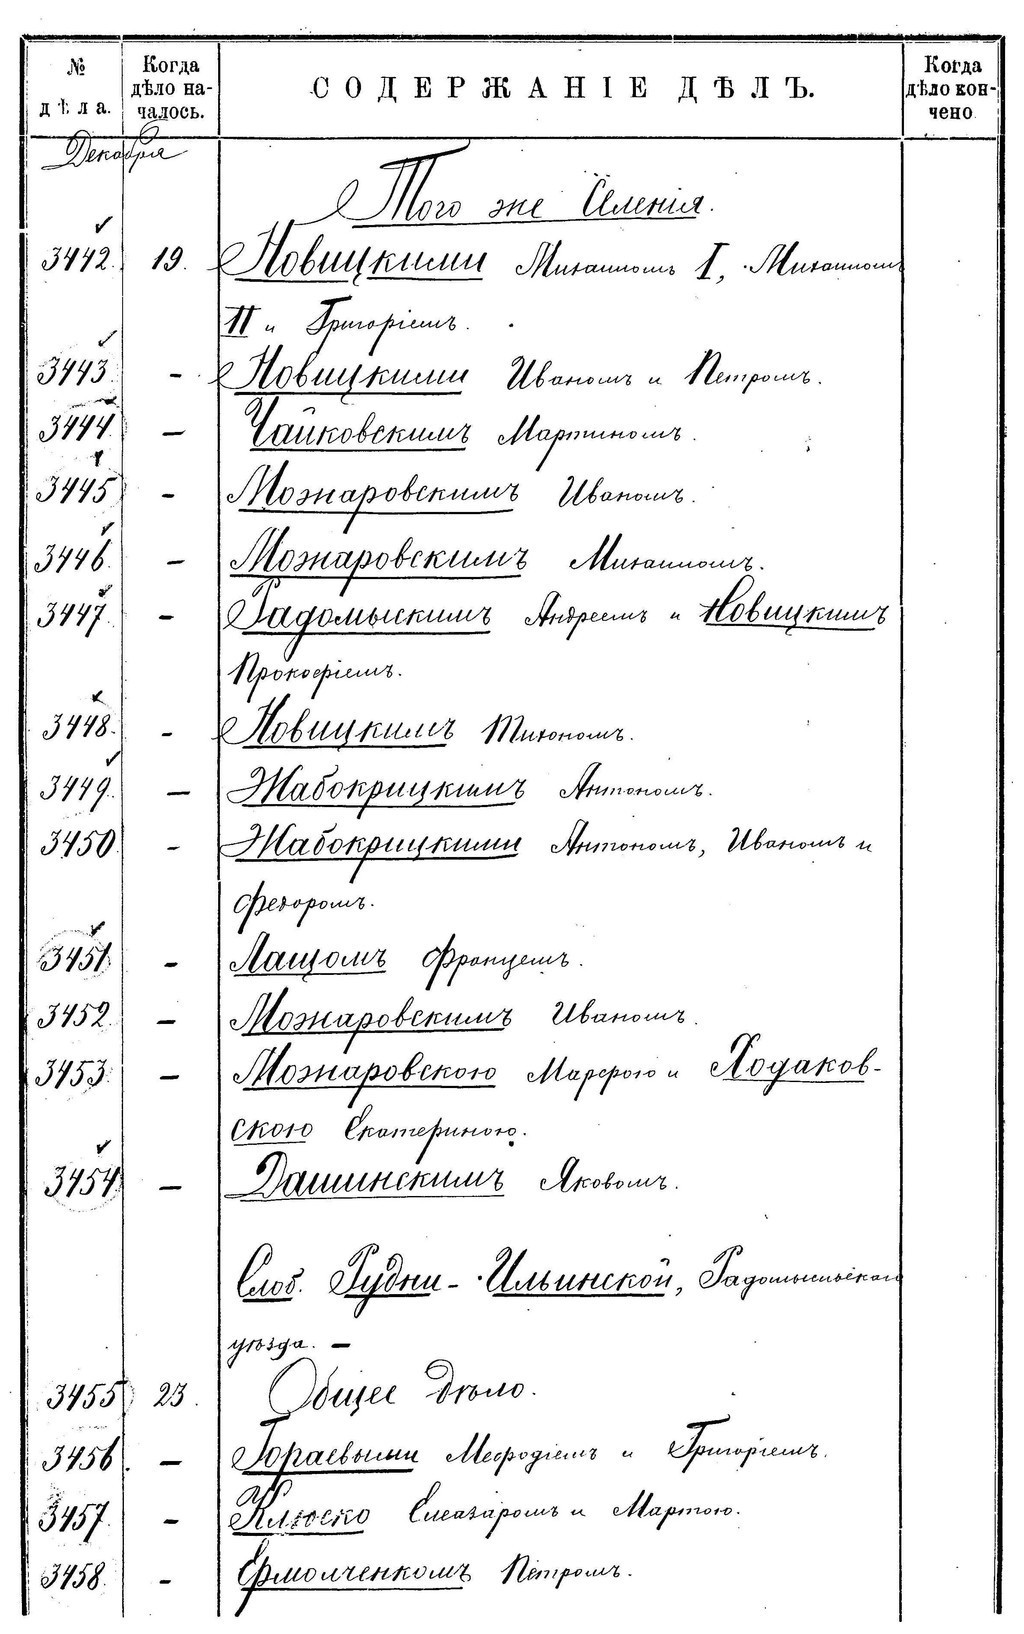 № дѣла. Когда дѣло началось. СОДЕРЖАНІЕ ДѢЛЪ. Когда дѣло кончено
Декабря
Того же Селенія.
3442. 19. Новицкими Михаиломъ I, Михаиломъ
II и Григоріемъ.
3443. - Новицкими Иваномъ и Петромъ.
3444. - Чайковскимъ Мартиномъ.
3445 - Можаровскимъ Иваномъ.
3446. - Можаровскимъ Михаиломъ.
3447. - Радомыскимъ Андреемъ и Новицкимъ
Прокофіемъ.
3448. - Новицкимъ Тихономъ.
3449. - Жабокрицкимъ Антономъ.
3450. - Жабокрицкими Антономъ, Иваномъ и
Федоромъ.
3451 - Лащомъ Францемъ.
3452. - Можаровскимъ Иваномъ.
3453. - Можаровскою Марфою и Ходаков-
скою Екатериною.
3454. - Дашинскимъ Яковомъ.
Слоб. Рудни-Ильинской, Радомысльскаго
уѣзда. —
3455 23. Общее дѣло.
3456. - Гораевыми Мефодіемъ и Григоріемъ.
3457. - Клюско Елеазаромъ и Мартою.
3458. - Ермолченкомъ Петромъ.